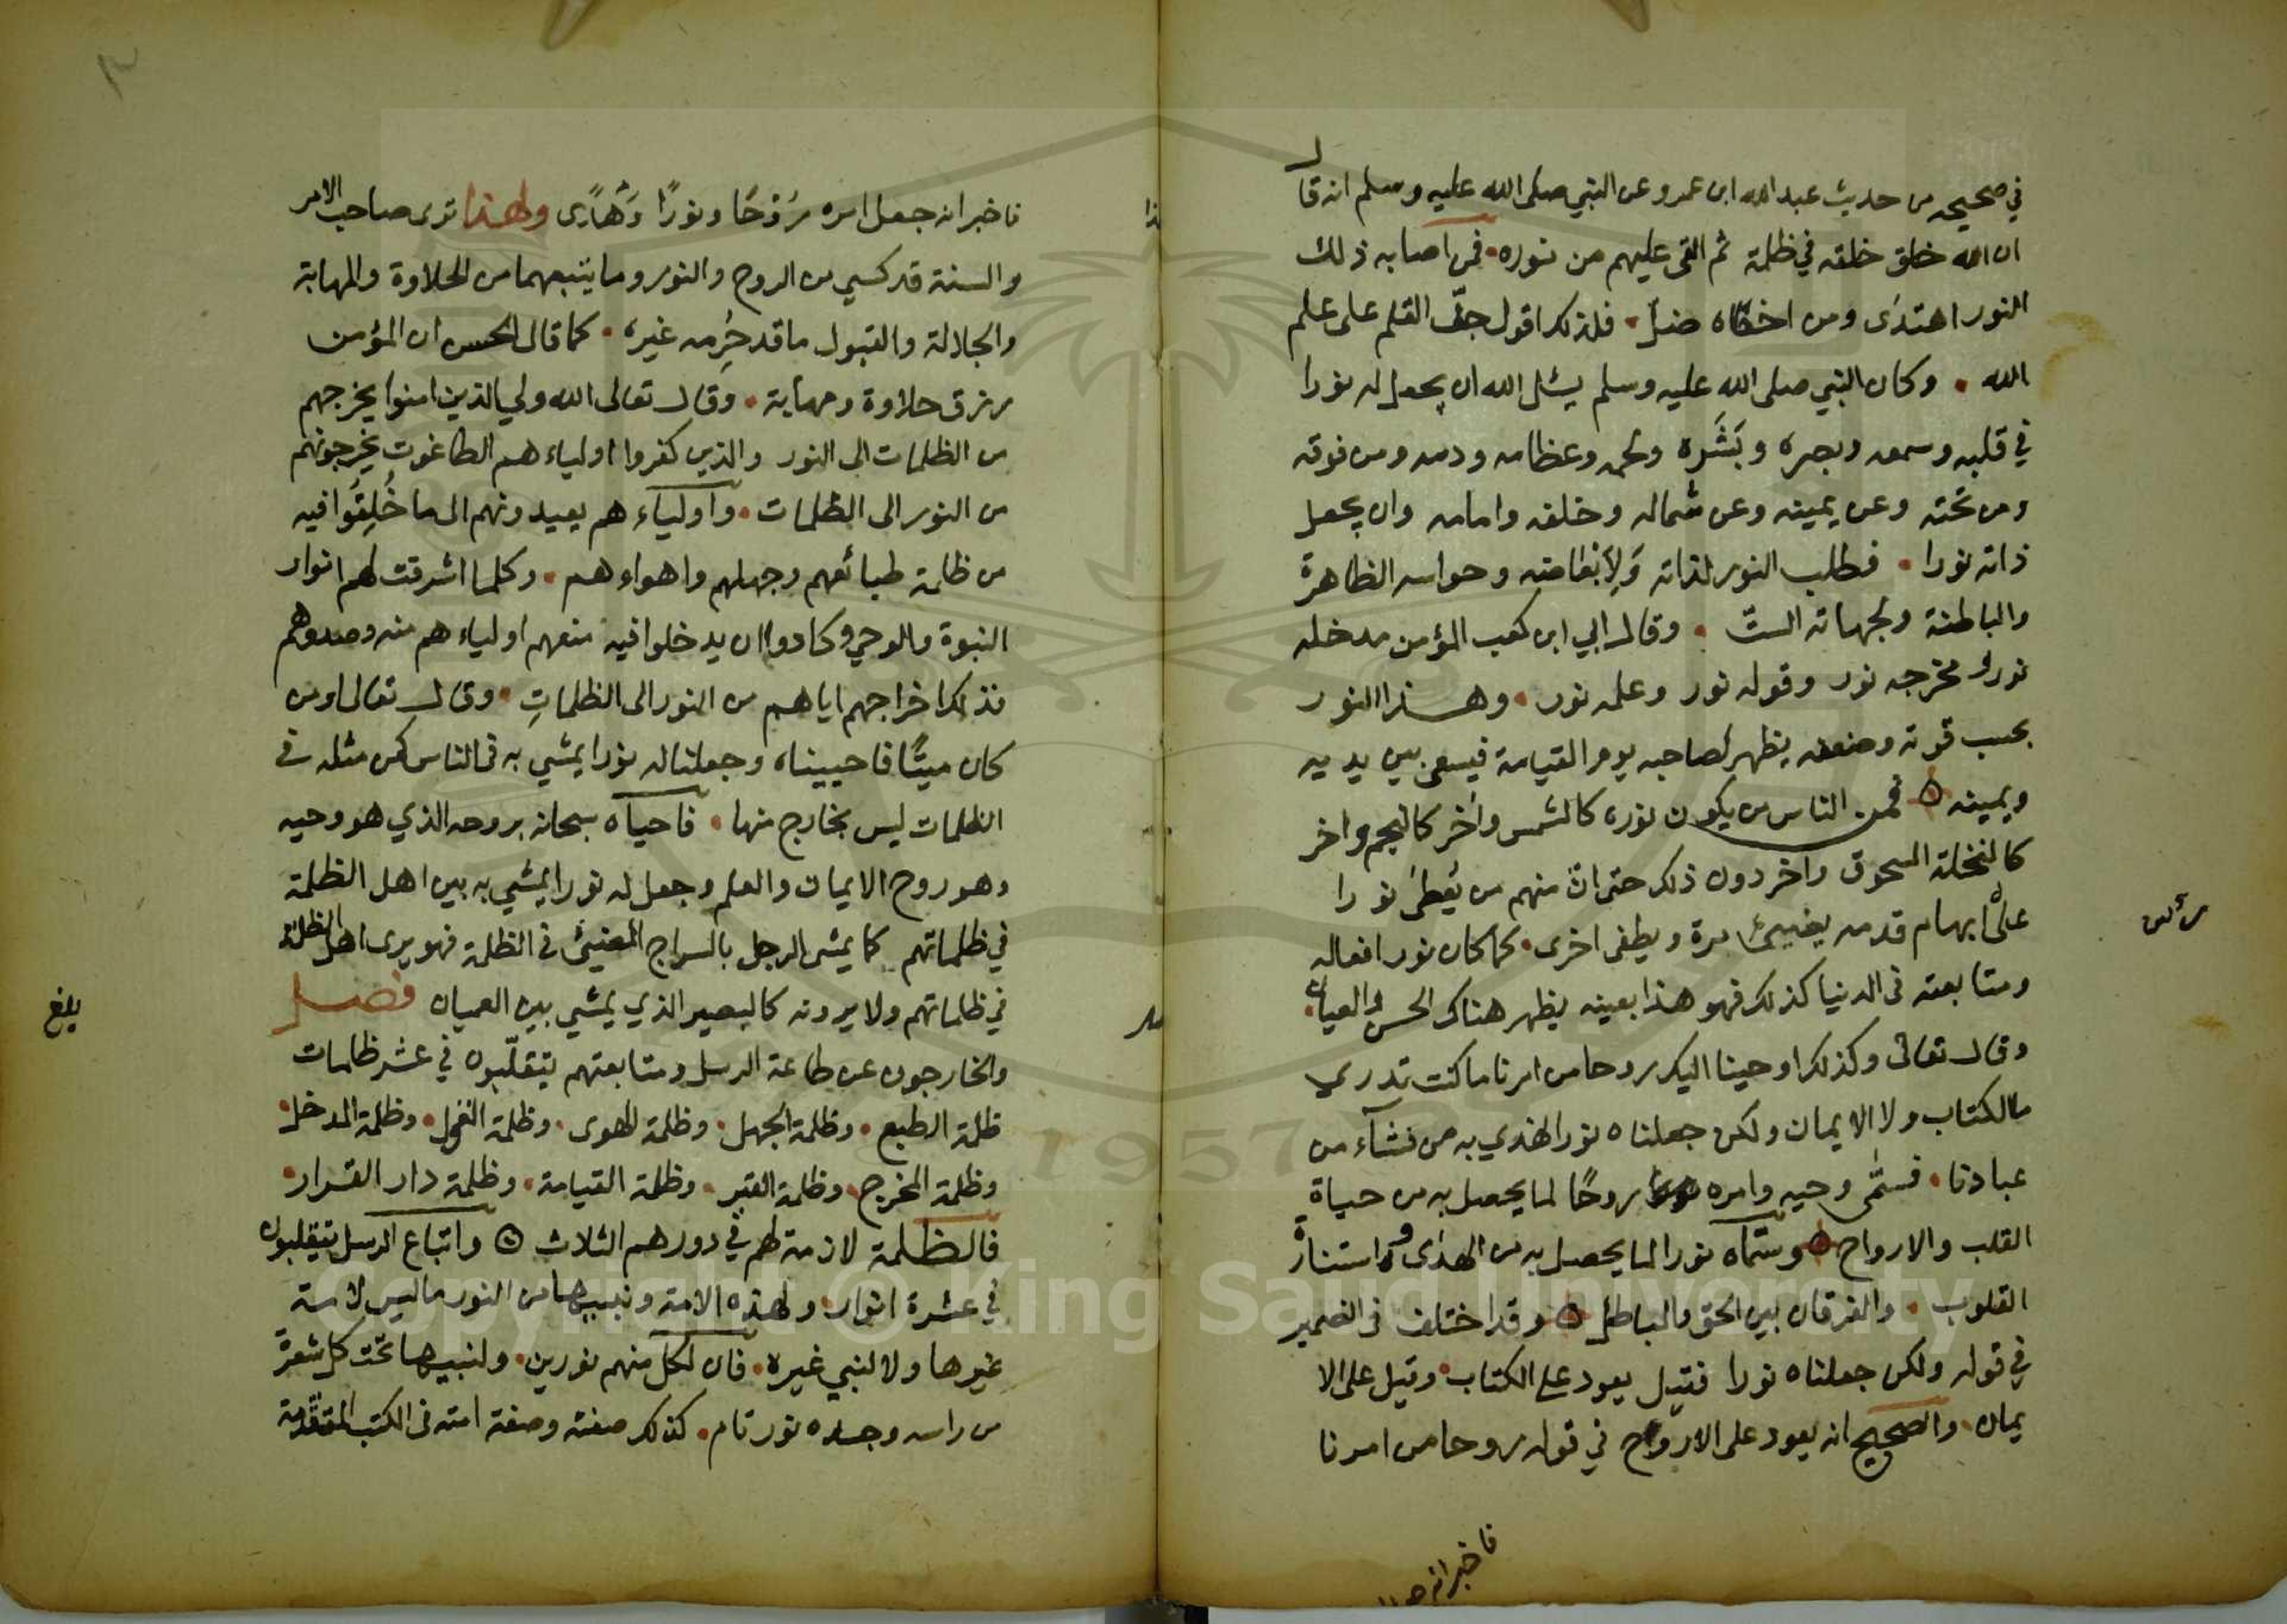 في صحيحه من حديث عبد الله ابن عمرو عن النبي صلى الله عليه وسلم انه قال
ان الله خلق خلقه في ظلمة ثم القى عليهم من نوره فمن اصابه ذلك
النور اهتدى ومن اخطاه ضل فلذلك اقول جفّ القلم على علم
الله وكان النبي صلى الله عليه وسلم يسئل الله ان يجعل له نورا
في قلبه وسمعه وبصره وبَشَره ولحمه وعظامه ودمه ومن فوقه
ومن تحته وعن يمينه وعن شماله وخلفه وامامه وان يجعل
ذاته نورا فطلب النور لذاته ولابعاضه وحواسه الظاهرة
والباطنة ولجهاته الستّ وقال ابي ابن كعب المؤمن مدخله
نور ومخرجه نور وقوله نور وعلمه نور وهذا النور
بحسب قوته وضعفه يظهر لصاحبه يوم القيامة فيسعى بين يديه
ويمينه فمن الناس من يكون نوره كالشمس واخر كالنجم واخر
كالنخلة السحوق واخر دون ذلك حتى ان منهم من يُعطى نورا
على ابهام قدمه يضيئ مرة ويطفى اخرى كما كان نور افعاله
ومتابعته في الدنيا كذلك فهو هذا بعينه يظهر هناك للحس والعيان
وقال تعالى وكذلك اوحينا اليك روحا من امرنا ما كنت تدري
مالكتاب ولا الايمان ولكن جعلناه نورا نهدي به من نشآء من
عبادنا فسمّى وحيه وامره روحًا لما يحصل به من حياة
القلب والارواح وسمّاه نورا لما يحصل به من الهدى واستنارة
القلوب والفرقان بين الحق والباطل وقد اختلف في الضمير
في قوله ولكن جعلناه نورا فقيل يعود على الكتاب وقيل على الا
يمان والصحيح انه يعود على الارواح في قوله روحا من امرنا
فاخبر انه
فاخبر انه جعل امره رُوْحًا ونورًا وَهُدًى ولهذا ترى صاحب الامر
والسنة قد كسي من الروح والنور وما يتبعهما من الحلاوة والمهابة
والجلالة والقبول ما قد حُرِمه غيره كما قال الحسن ان المؤمن
رزق حلاوة ومهابة وقال تعالى الله ولي الذين امنوا يخرجهم
من الظلمات الى النور والذين كفروا اولياءهم الطاغوت يخرجونهم
من النور الى الظلمات واولياءهم يعيدونهم الى ما خُلِقُوا فيه
من ظلمة طبائعهم وجهلهم واهواءهم وكلما اشرقت لهم انوار
النبوة والوحي وكادوا ان يدخلوا فيه منعهم اولياءهم منه وصدوهم
فذلك اخراجهم اياهم من النور الى الظلماتِ وقال تعالى اومن
كان ميتًا فاحييناه وجعلنا له نورا يمشي به في الناس كمن مثله في
الظلمات ليس بخارج منها فاحياه سبحانه بروحه الذي هو وحيه
وهو روح الايمان والعلم وجعل له نورا يمشي به بين اهل الظلمة
في ظلماتهم كما يمشي الرجل بالسراج المضيئ في الظلمة فهو يرى اهل الظلمة
في ظلماتهم ولا يرونه كالبصير الذي يمشي بين العميان فصل
بلغ
والخارجون عن طاعة الرسل ومتابعتهم يتقلّبون في عشر ظلمات
ظلمة الطبع وظلمة الجهل وظلمة الهوى وظلمة القول وظلمة المدخل
وظلمة المخرج وظلمة القبر وظلمة القيامة وظلمة دار القرار
فالظلمة لازمة لهم في دورهم الثلاث واتباع الرسل يتقلبون
في عشرة انوار ولهذه الامة ونبيها من النور ماليس لامة
غيرها ولا لنبي غيره فان لكل منهم نورين ولنبيها تحت كل شعرة
من راسه وجسده نور تام كذلك صفته وصفة امته في الكتب المتقدمة